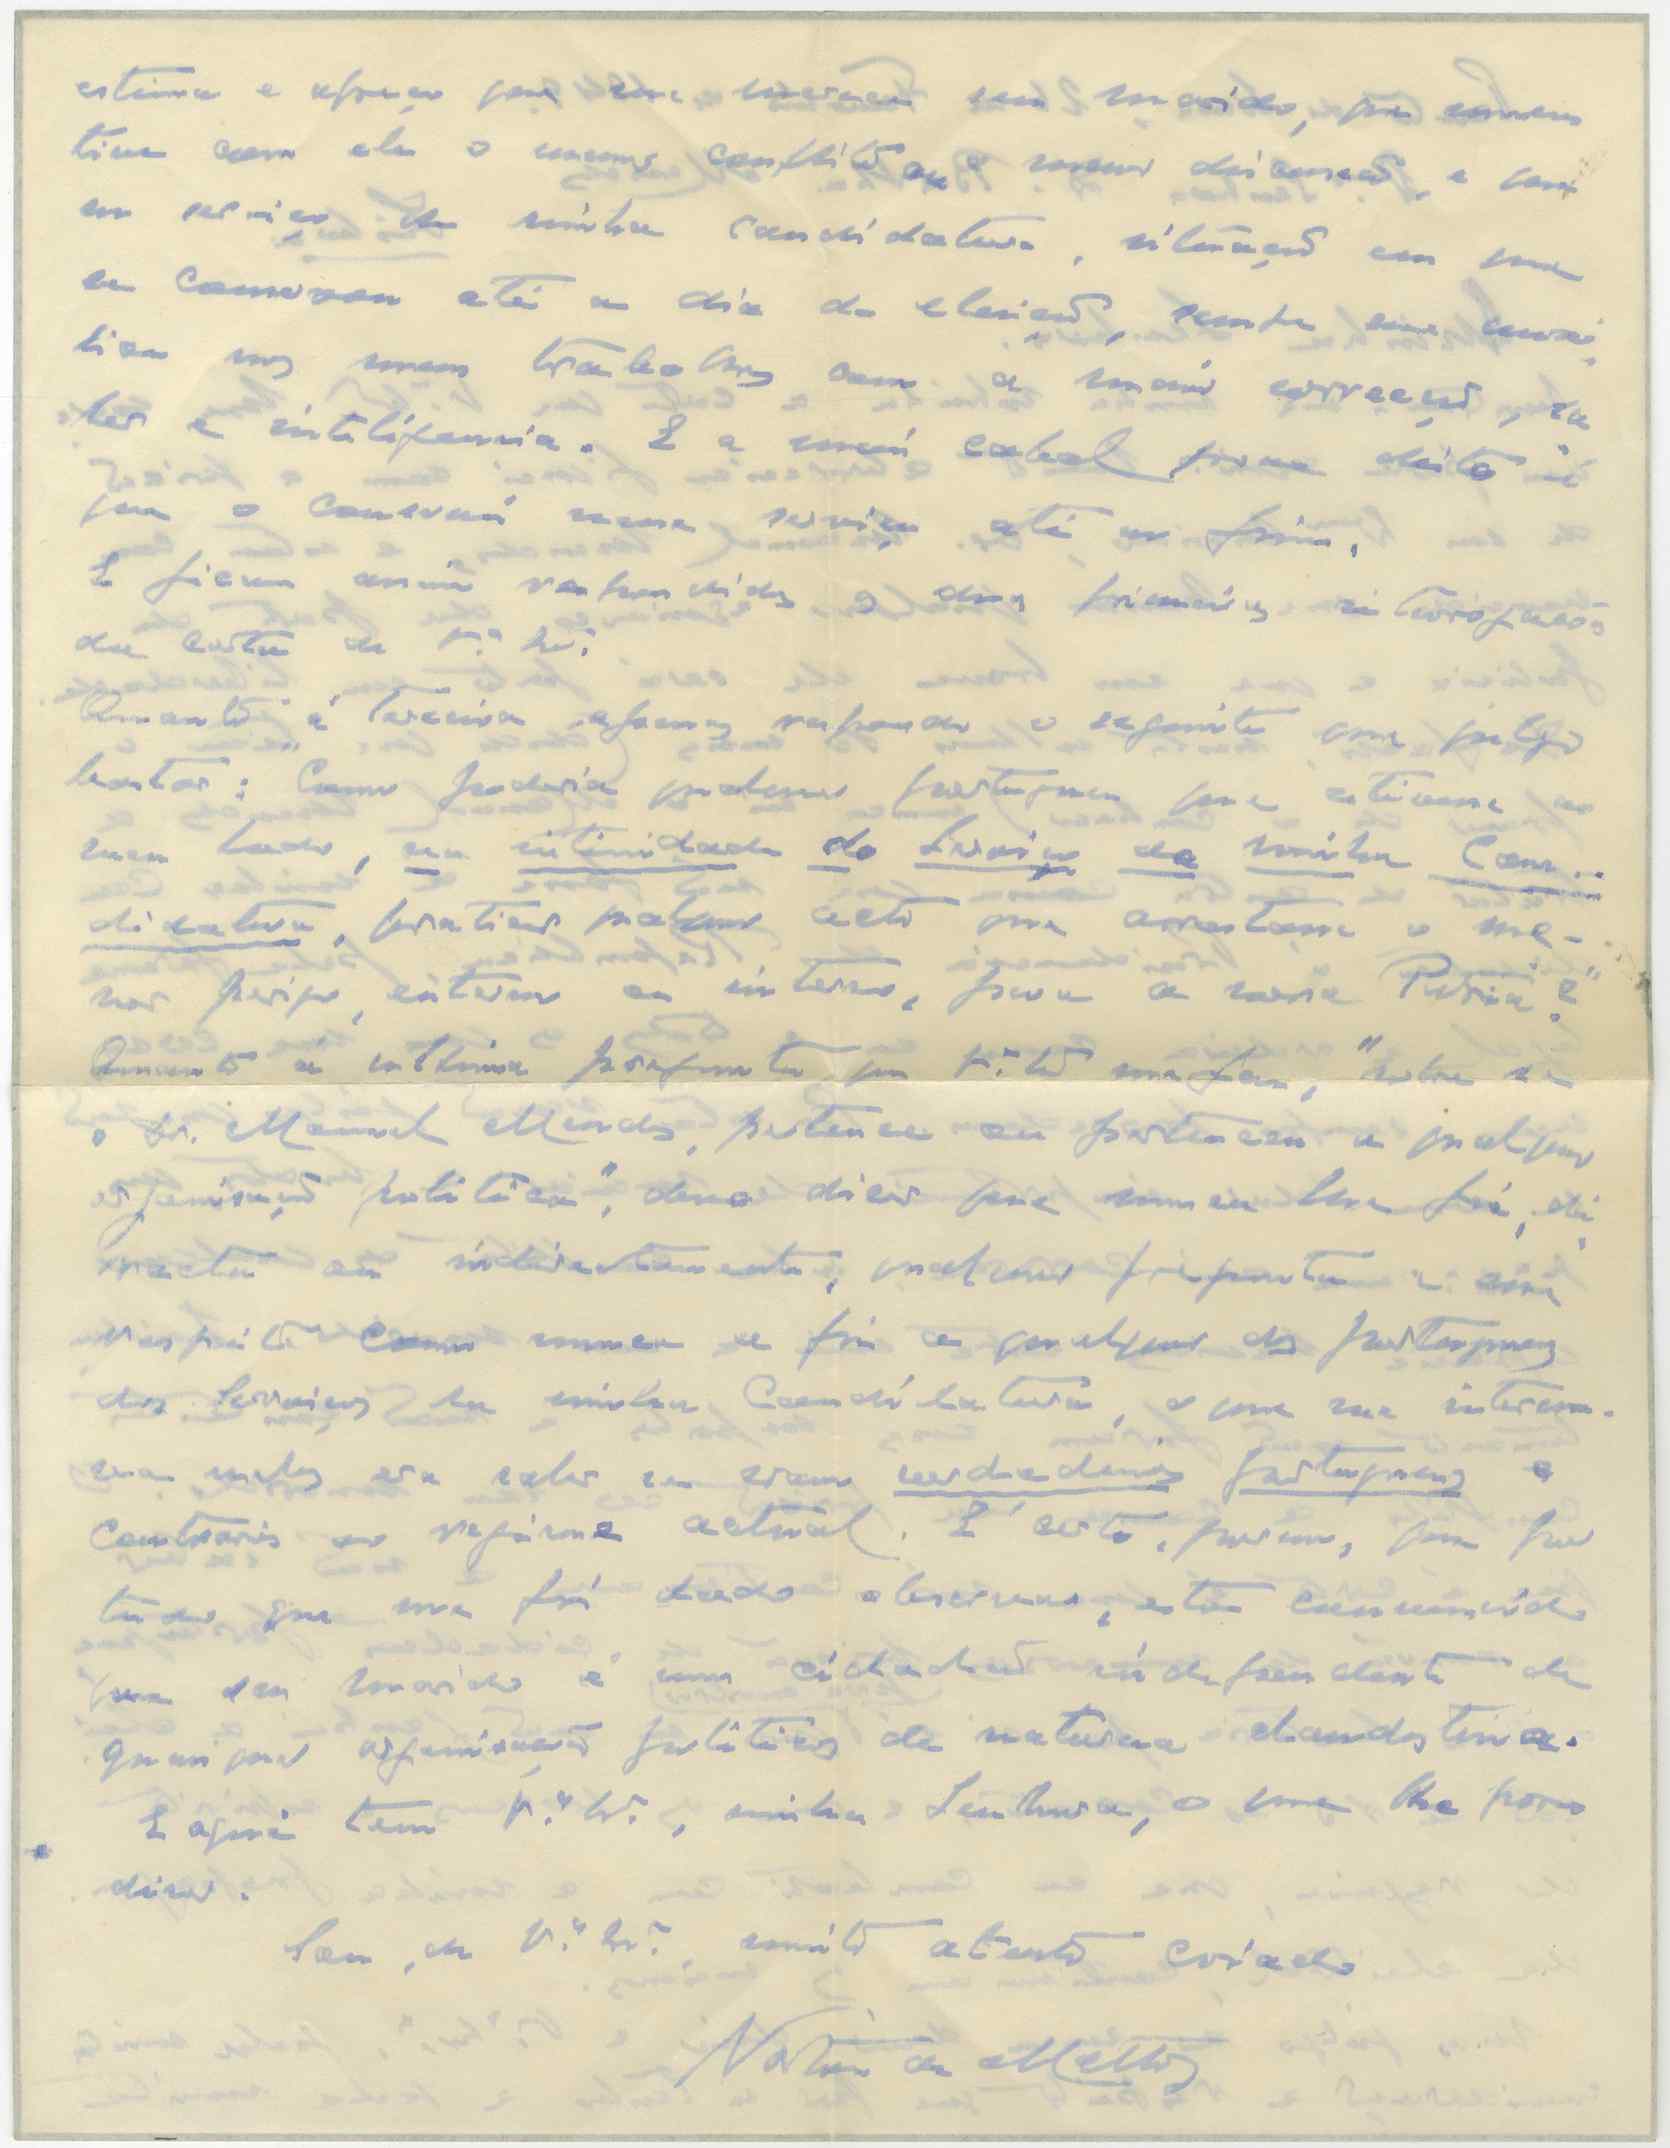 estima e apreço que me merece seu marido, que nunca
tive com ele o menor conflito ou a menor discussão, e que
em serviço da minha candidatura, situação em que
se conservou até ao dia da eleição, sempre me auxi-
liou nos meus trabalhos com a maior correcção, sa-
ber e inteligencia. E a mais cabal prova disto é
que o conservei nesse serviço até ao fim.
E ficam assim respondidas as duas primeiras interrogações
da carta de V.ª Ex.ª
Quanto á terceira apenas respondo o seguinte que julgo
bastar: "Como poderia qualquer portuguez que estivesse ao
meu lado, na intimidade do Serviço da minha Can-
didatura, praticar qualquer acto que arrastasse o me-
nor perigo, externo ou interno, para a nossa Patria?"
Quanto á ultima pergunta que V.ª Ex.ª me faz, "sobre se
o Dr. Manuel Mendes, pertence ou pertenceu a qualquer
organisação politica", devo dizer que nunca lhe fiz, di-
recta ou indirectamente, qualquer pregunta a esse
respeito como nunca a fiz a qualquer dos portuguezes
dos Serviços da minha Candidatura, o que me interes-
sava nelles era saber se eram verdadeiros portuguezes e
contrarios ao regime actual. É certo, porem, que por
tudo que me foi dado observar, estou convencido
que seu marido é um cidadão independente de
quaisquer organisações politicas de natureza clandestina.
E aqui tem V.ª Ex.ª, minha Senhora, o que lhe posso
dizer.
Sou, de V.ª Ex.ª, muito atento criado
Norton de Mattos